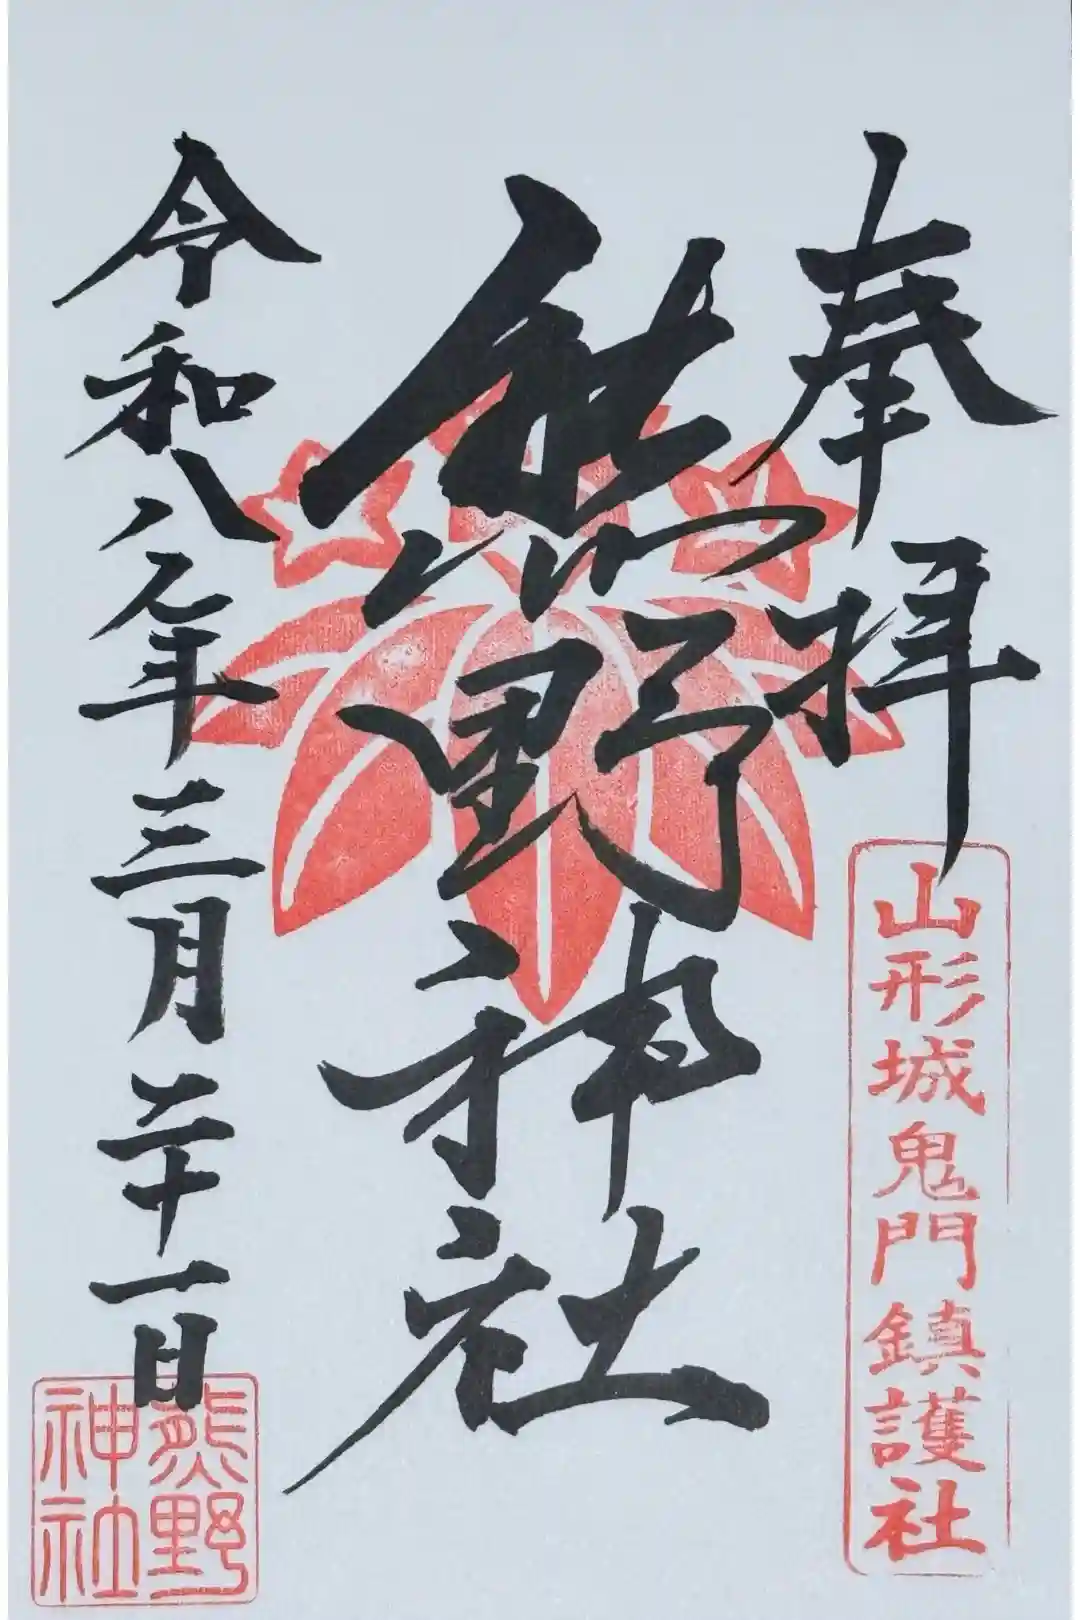 奉拝
山形城鬼門鎮護社
熊野神社
令和八年三月二十一日
熊野神社